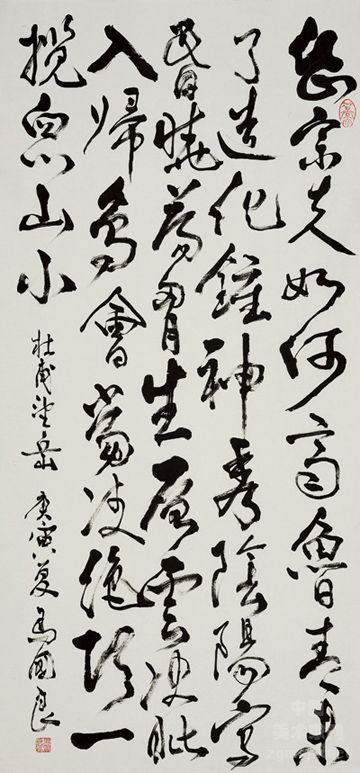 岱宗夫如何齐魯青未
了造化鍾神秀陰陽割
昏曉荡胸生層雲决眦
入歸鳥會當凌絶頂一
揽衆山小
杜甫望岳 庚寅夏 馬國良